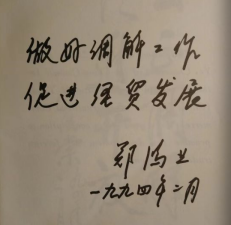 做好调解工作
促进经贸发展
郑鸿业
一九九四年二月